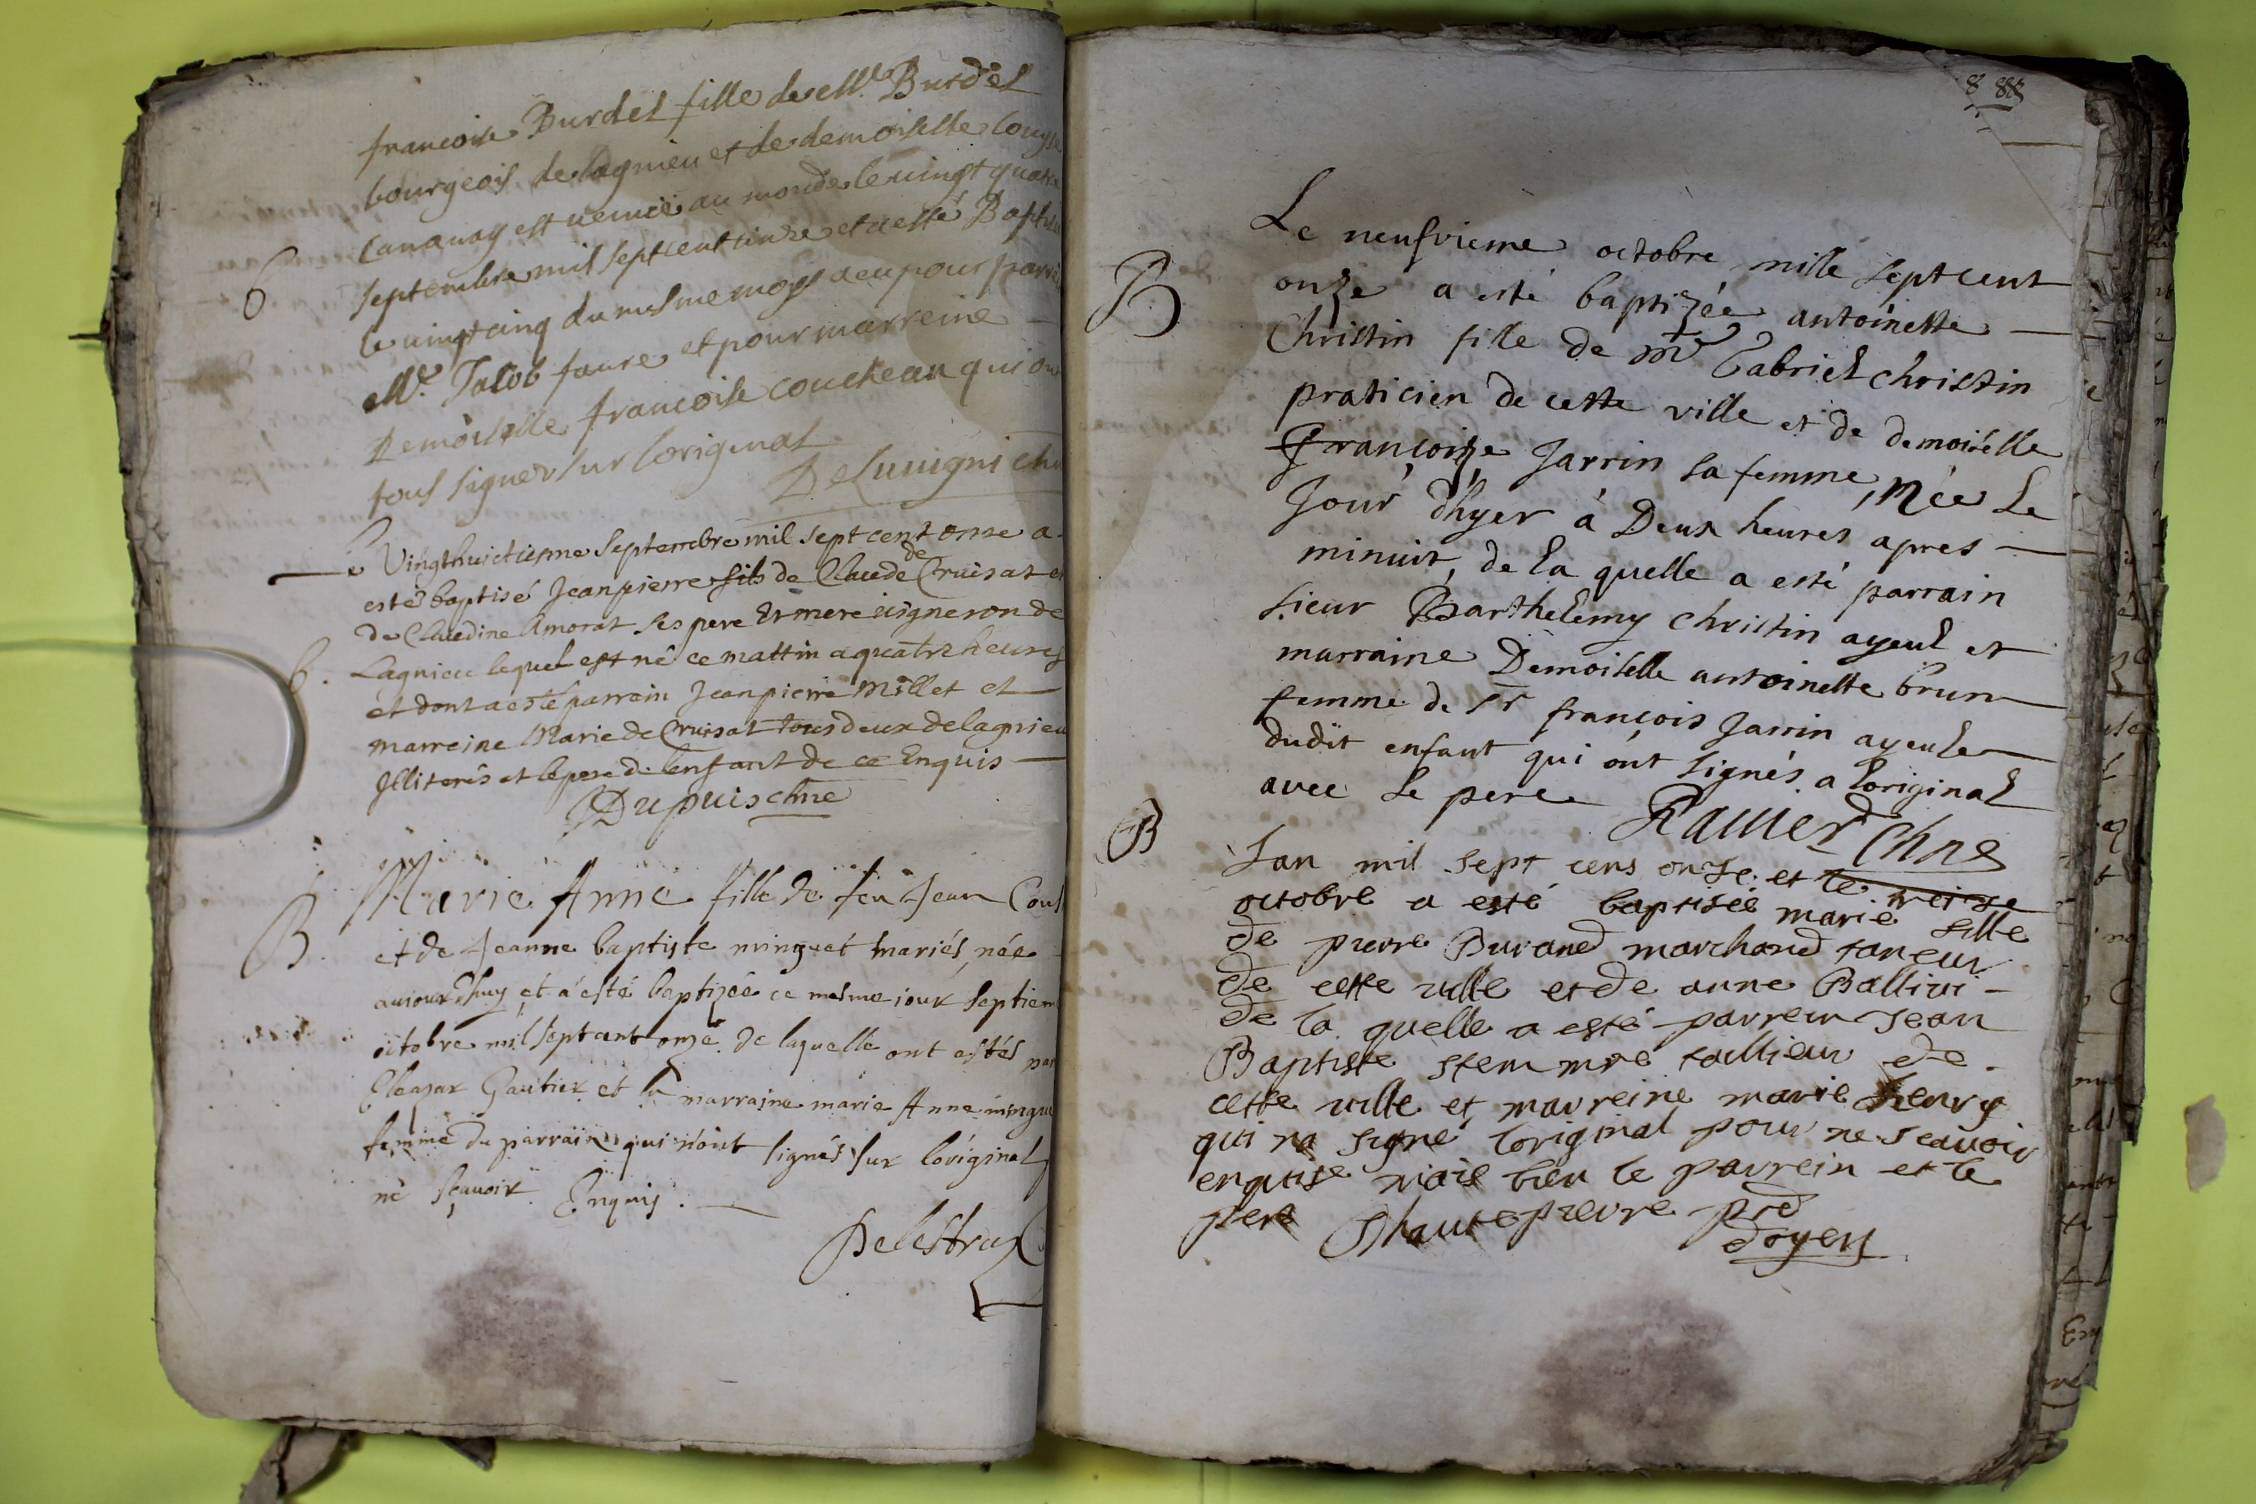 francoise Burdel fille de Mr. Burdel
bourgeois de lagnieu et de demoiselle Louyse
Cananay est venüe au monde le vingt quatre
B septembre mil sept cent onze et a esté Baptisée
le vingt cinq du mesme moys a eu pour parrain
Mr. Jacob faure et pour marreine
Demoiselle francoise coucheau qui ont
tous signer sur loriginal
Vingthuictieme Septembre mil sept cent onze a
esté baptisé Jeanpierre fils de Claude de Cruisat et
de Claudine Amorat ses pere Et mere vigneron de
b. Lagnieu lequel est né ce mattin a quatre heures
et dont a esté parrain Jeanpierre Millet et
marreine Marie de Cruisat tous deux de lagnieu
Jlliterés et le pere de lenfant de ce Enquis
Dupuis chne
Marie Anne fille de feu Jean
B. et de Jeanne baptiste minguet mariés, née
aujourdhuy et a esté baptizée ce mesme iour septiem
octobre mil sept cent onze de laquelle ont estés par
Eleazar Gautier et la marraine marie Anne mingue
femme du parrain qui n'ont signés sur l'original
ne sçauoir Enquis.
8 88
Le neufvieme octobre mille sept cent
B onze a esté baptizée antoinette
Christin fille de mre Gabriel christin
praticien de cette ville et de demoiselle
Françoize Jarrin sa femme, Née Le
Jour d'hyer à Deux heures apres
minuit, de La quelle a esté parrain
Sieur Barthelemy christin ayeul et
marraine Demoiselle antoinette brun
femme de Sr françois Jarrin ayeule
dudit enfant qui ont signés a l'original
avec Le pere
Ravier Chne
B Lan mil sept cens onze et le treize
octobre a esté baptisée marie fille
de pierre Durand marchand taneur
de cette ville et de anne Ballivi
de la quelle a esté parrein Jean
Baptiste stem mre tallieur de
cette ville et marreine marie henry
qui na signé loriginal pour ne scauoir
enquise mais bien le parrein et le
pere Dhautepierre prd
doyen